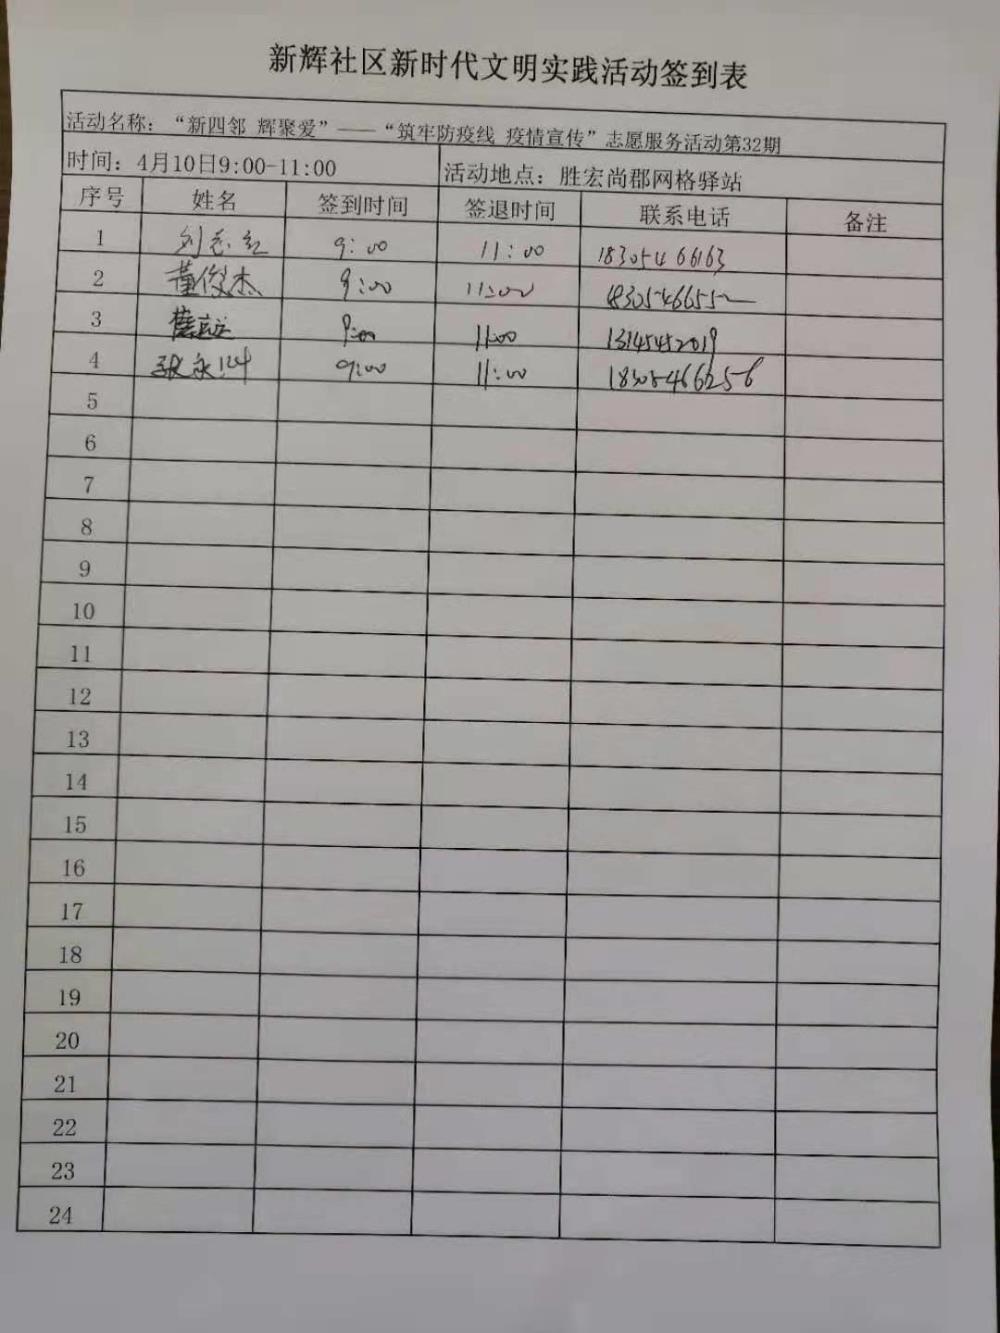 新辉社区新时代文明实践活动签到表
活动名称：“新四邻 辉聚爱”——“筑牢防疫线 疫情宣传”志愿服务活动第32期
时间：4月10日9:00-11:00 活动地点：胜宏尚郡网格驿站
序号 姓名 签到时间 签退时间 联系电话 备注
1 刘志红 9:00 11:00 18305466163
2 董俊杰 9:00 11:00
3 9:00 11:00 13145452019
4 张永 9:00 11:00 18305466256
5
6
7
8
9
10
11
12
13
14
15
16
17
18
19
20
21
22
23
24